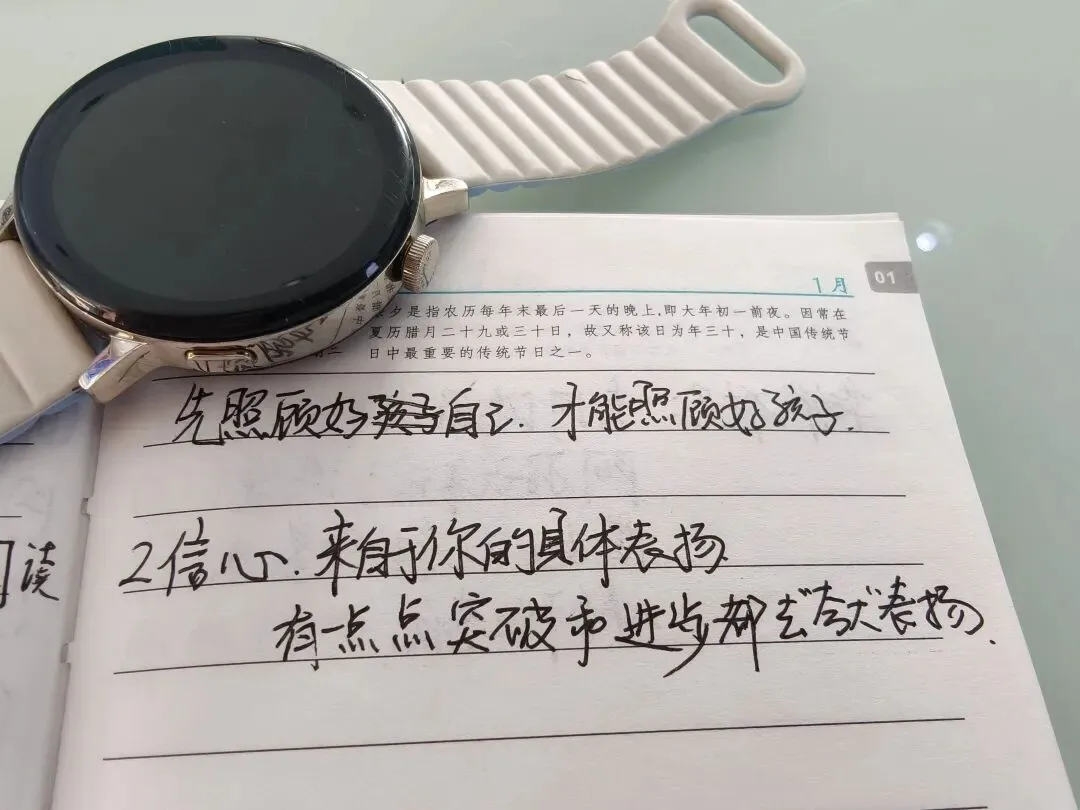 1月
01
夕是指农历每年末最后一天的晚上,即大年初一前夜。因常在
夏历腊月二十九或三十日，故又称该日为年三十，是中国传统节
日中最重要的传统节日之一。
先照顾好孩子自己.才能照顾好孩子.
2信心.来自于你的具体表扬.
有一点点突破和进步都去"夸大"表扬.
读